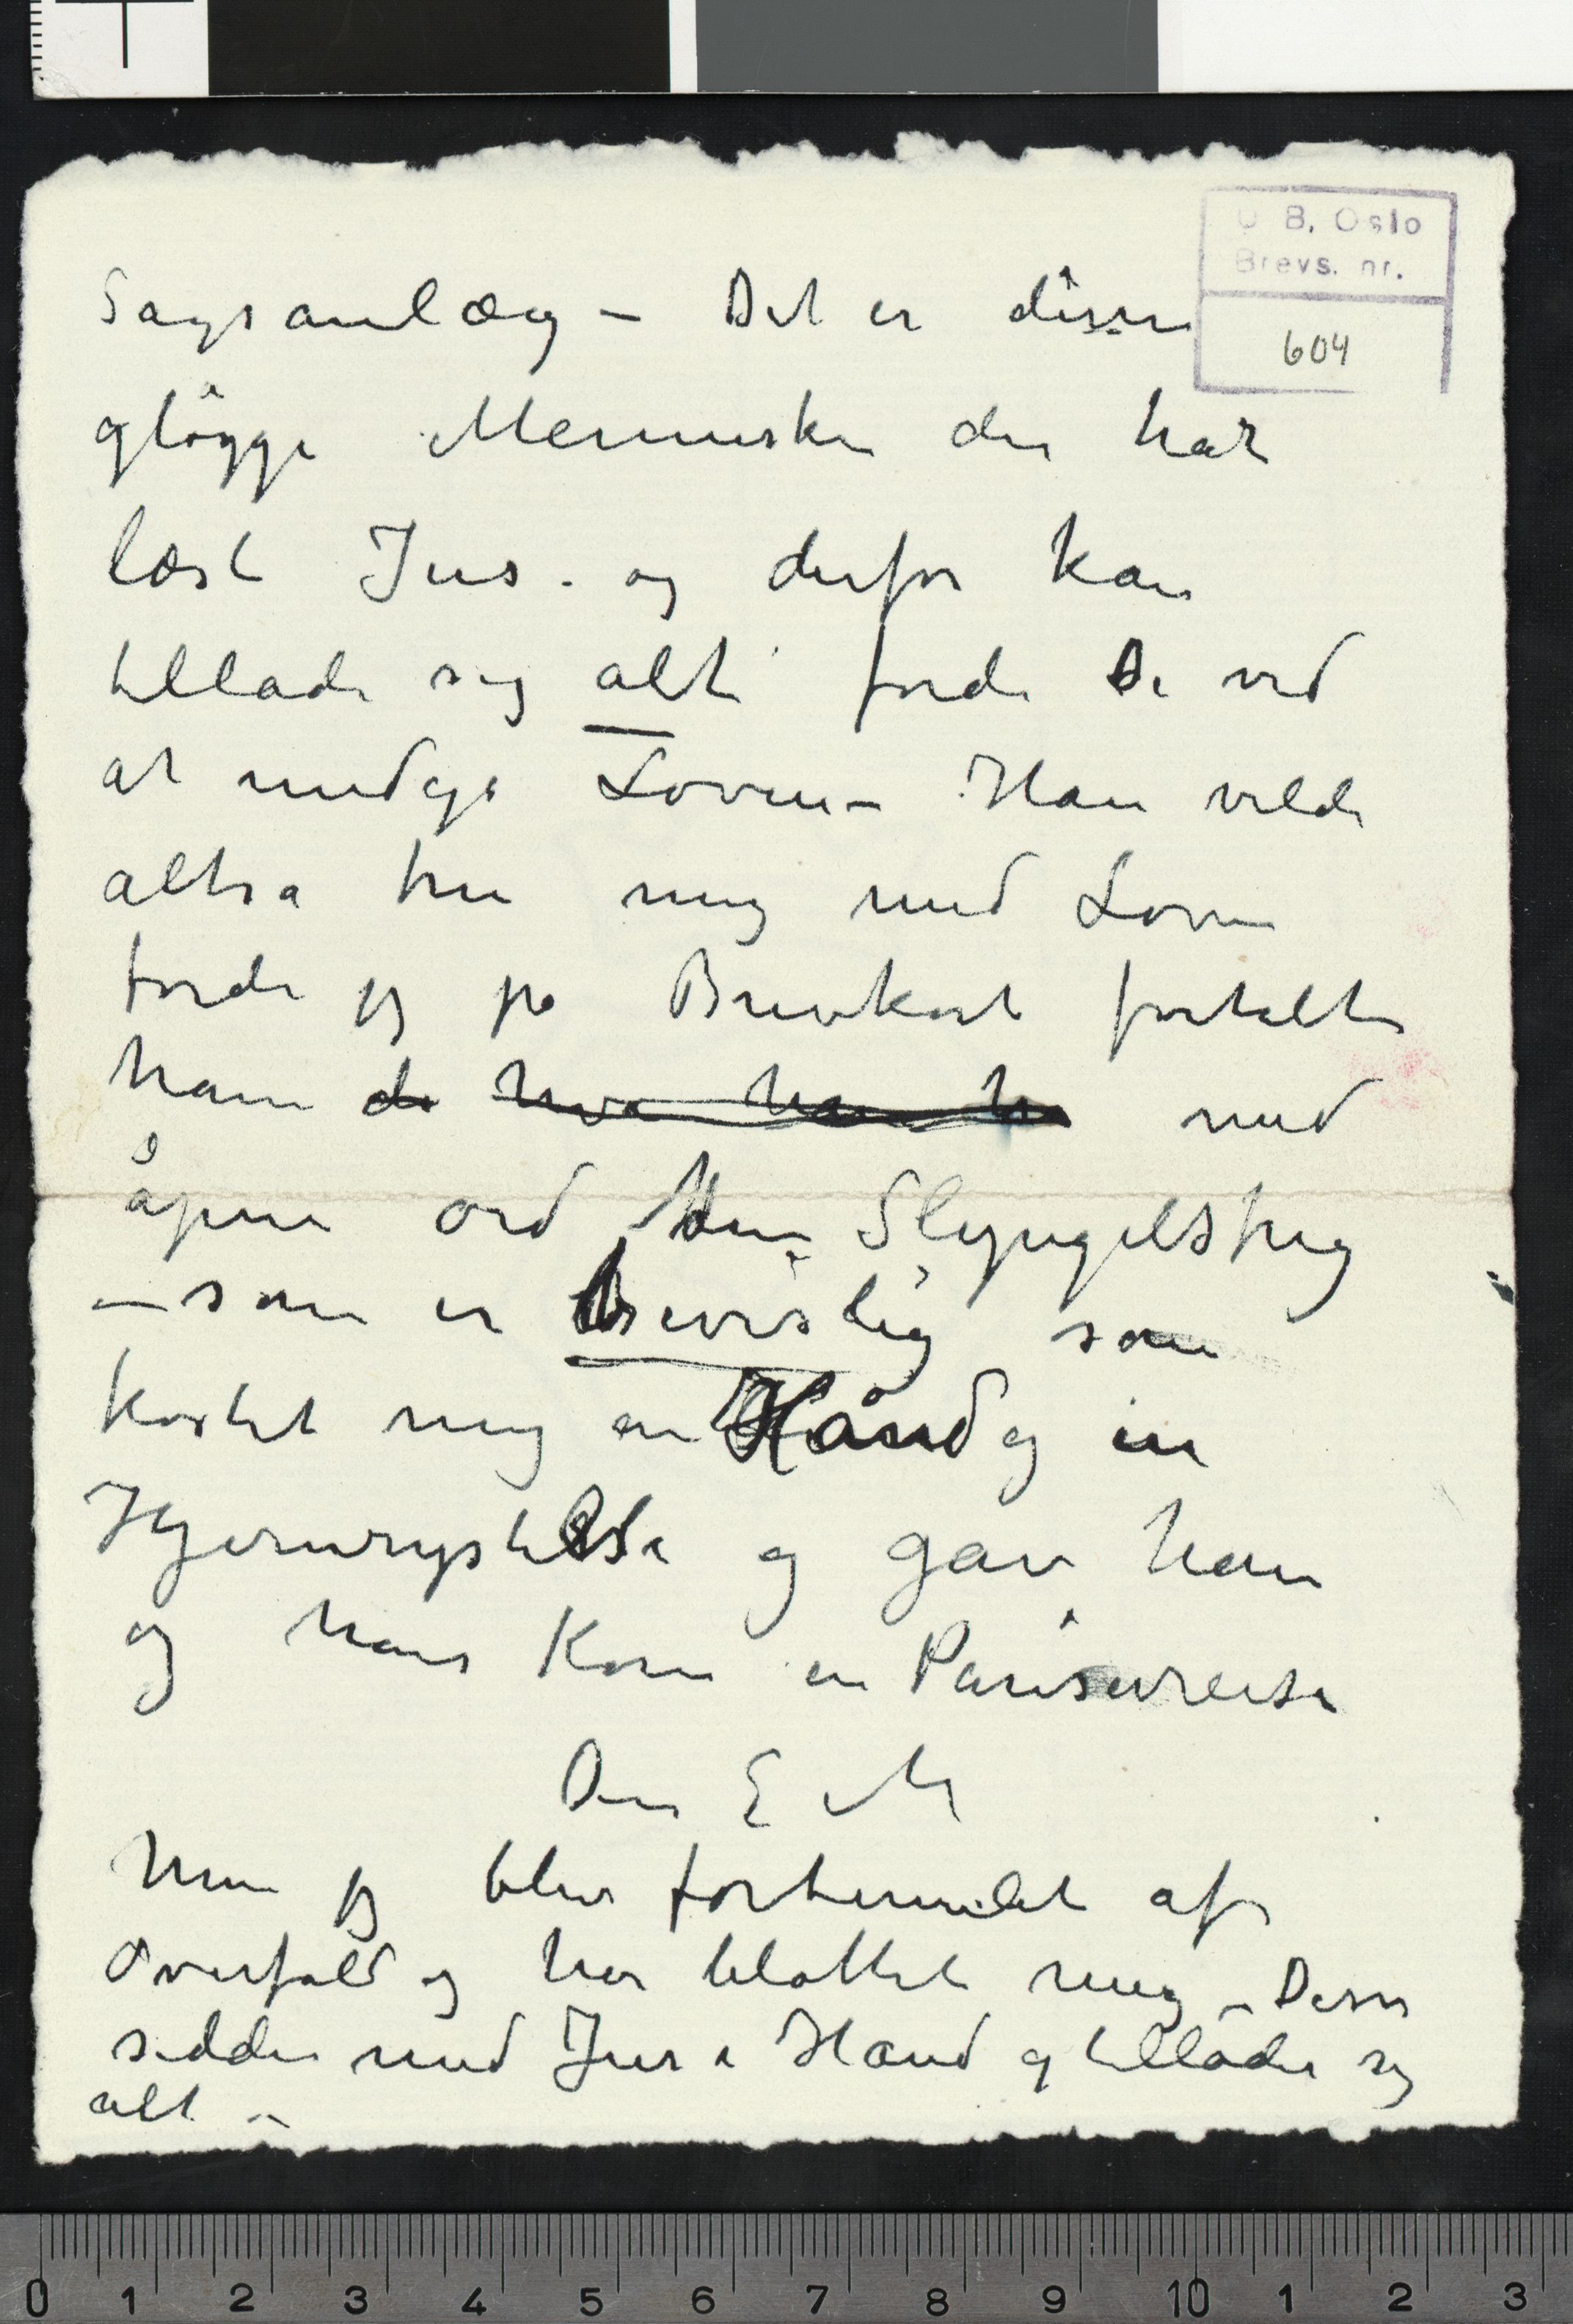 U B. Oslo
Brevs. nr.
604
Sagsanlæg – Det er disse
gløgge Mennesker der har
læst Jus. og derfor kan
tillade sig alt fordi De ved
at undgå Loven – Han vilde
altså true mig med Loven
fordi jeg på Brevkort fortalte
ham de hva han ha med
åpne ord den Slyngelstreg
– som er bevislig som
kostet mig en Hånd og en
Hjernerystelse og gav ham
og hans Kone en Pariserreise
Deres E M
Men jeg blev fortumlet af
Overfald og har blottet mig – Disse
sidder med Jus i Hånd og tillader sig
alt –
0 1 2 3 4 5 6 7 8 9 10 1 2 3